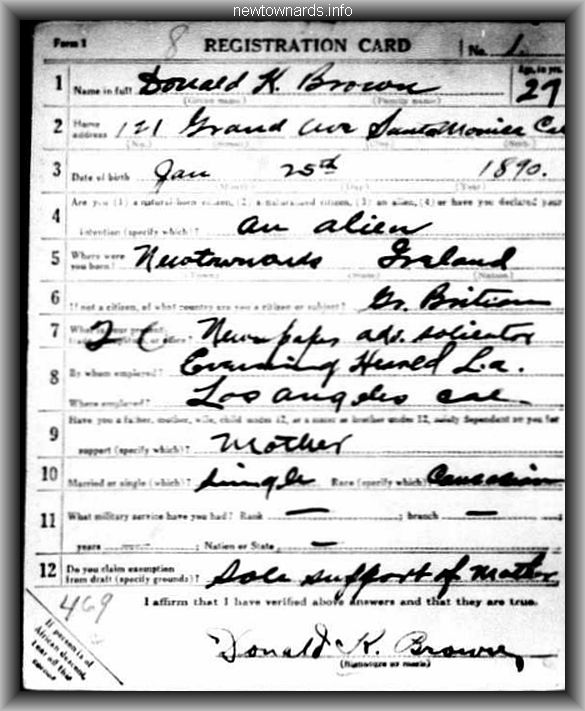 newtownards.info
Form 1 8 REGISTRATION CARD No. 1.
1 Name in full Donald K. Brown Age, in yrs. 27
(Given name) (Family name)
2 Home address 121 Grand Ave Santa Monica Cal
(No.) (Street) (City) (State)
3 Date of birth Jan 25th 1890.
(Month) (Day) (Year)
4 Are you (1) a natural-born citizen, (2) a naturalized citizen, (3) an alien, (4) or have you declared your
intention (specify which)? an alien
5 Where were you born? Newtownards Ireland
(Town) (State) (Nation)
6 If not a citizen, of what country are you a citizen or subject? Gr. Britian
7 What is your present trade, occupation, or office? Newspaper adv. solicitor
8 By whom employed? Evening Herald L.a.
Where employed? Los angeles cal
9 Have you a father, mother, wife, child under 12, or a sister or brother under 12, solely dependent on you for
support (specify which)? Mother
10 Married or single (which)? single Race (specify which) Caucasian
11 What military service have you had? Rank — ; branch —
years ; Nation or State —
12 Do you claim exemption from draft (specify grounds)? Sole support of Mother
I affirm that I have verified above answers and that they are true.
469
If person is of
African descent,
tear off this
corner
Donald K. Brown
(Signature or mark)